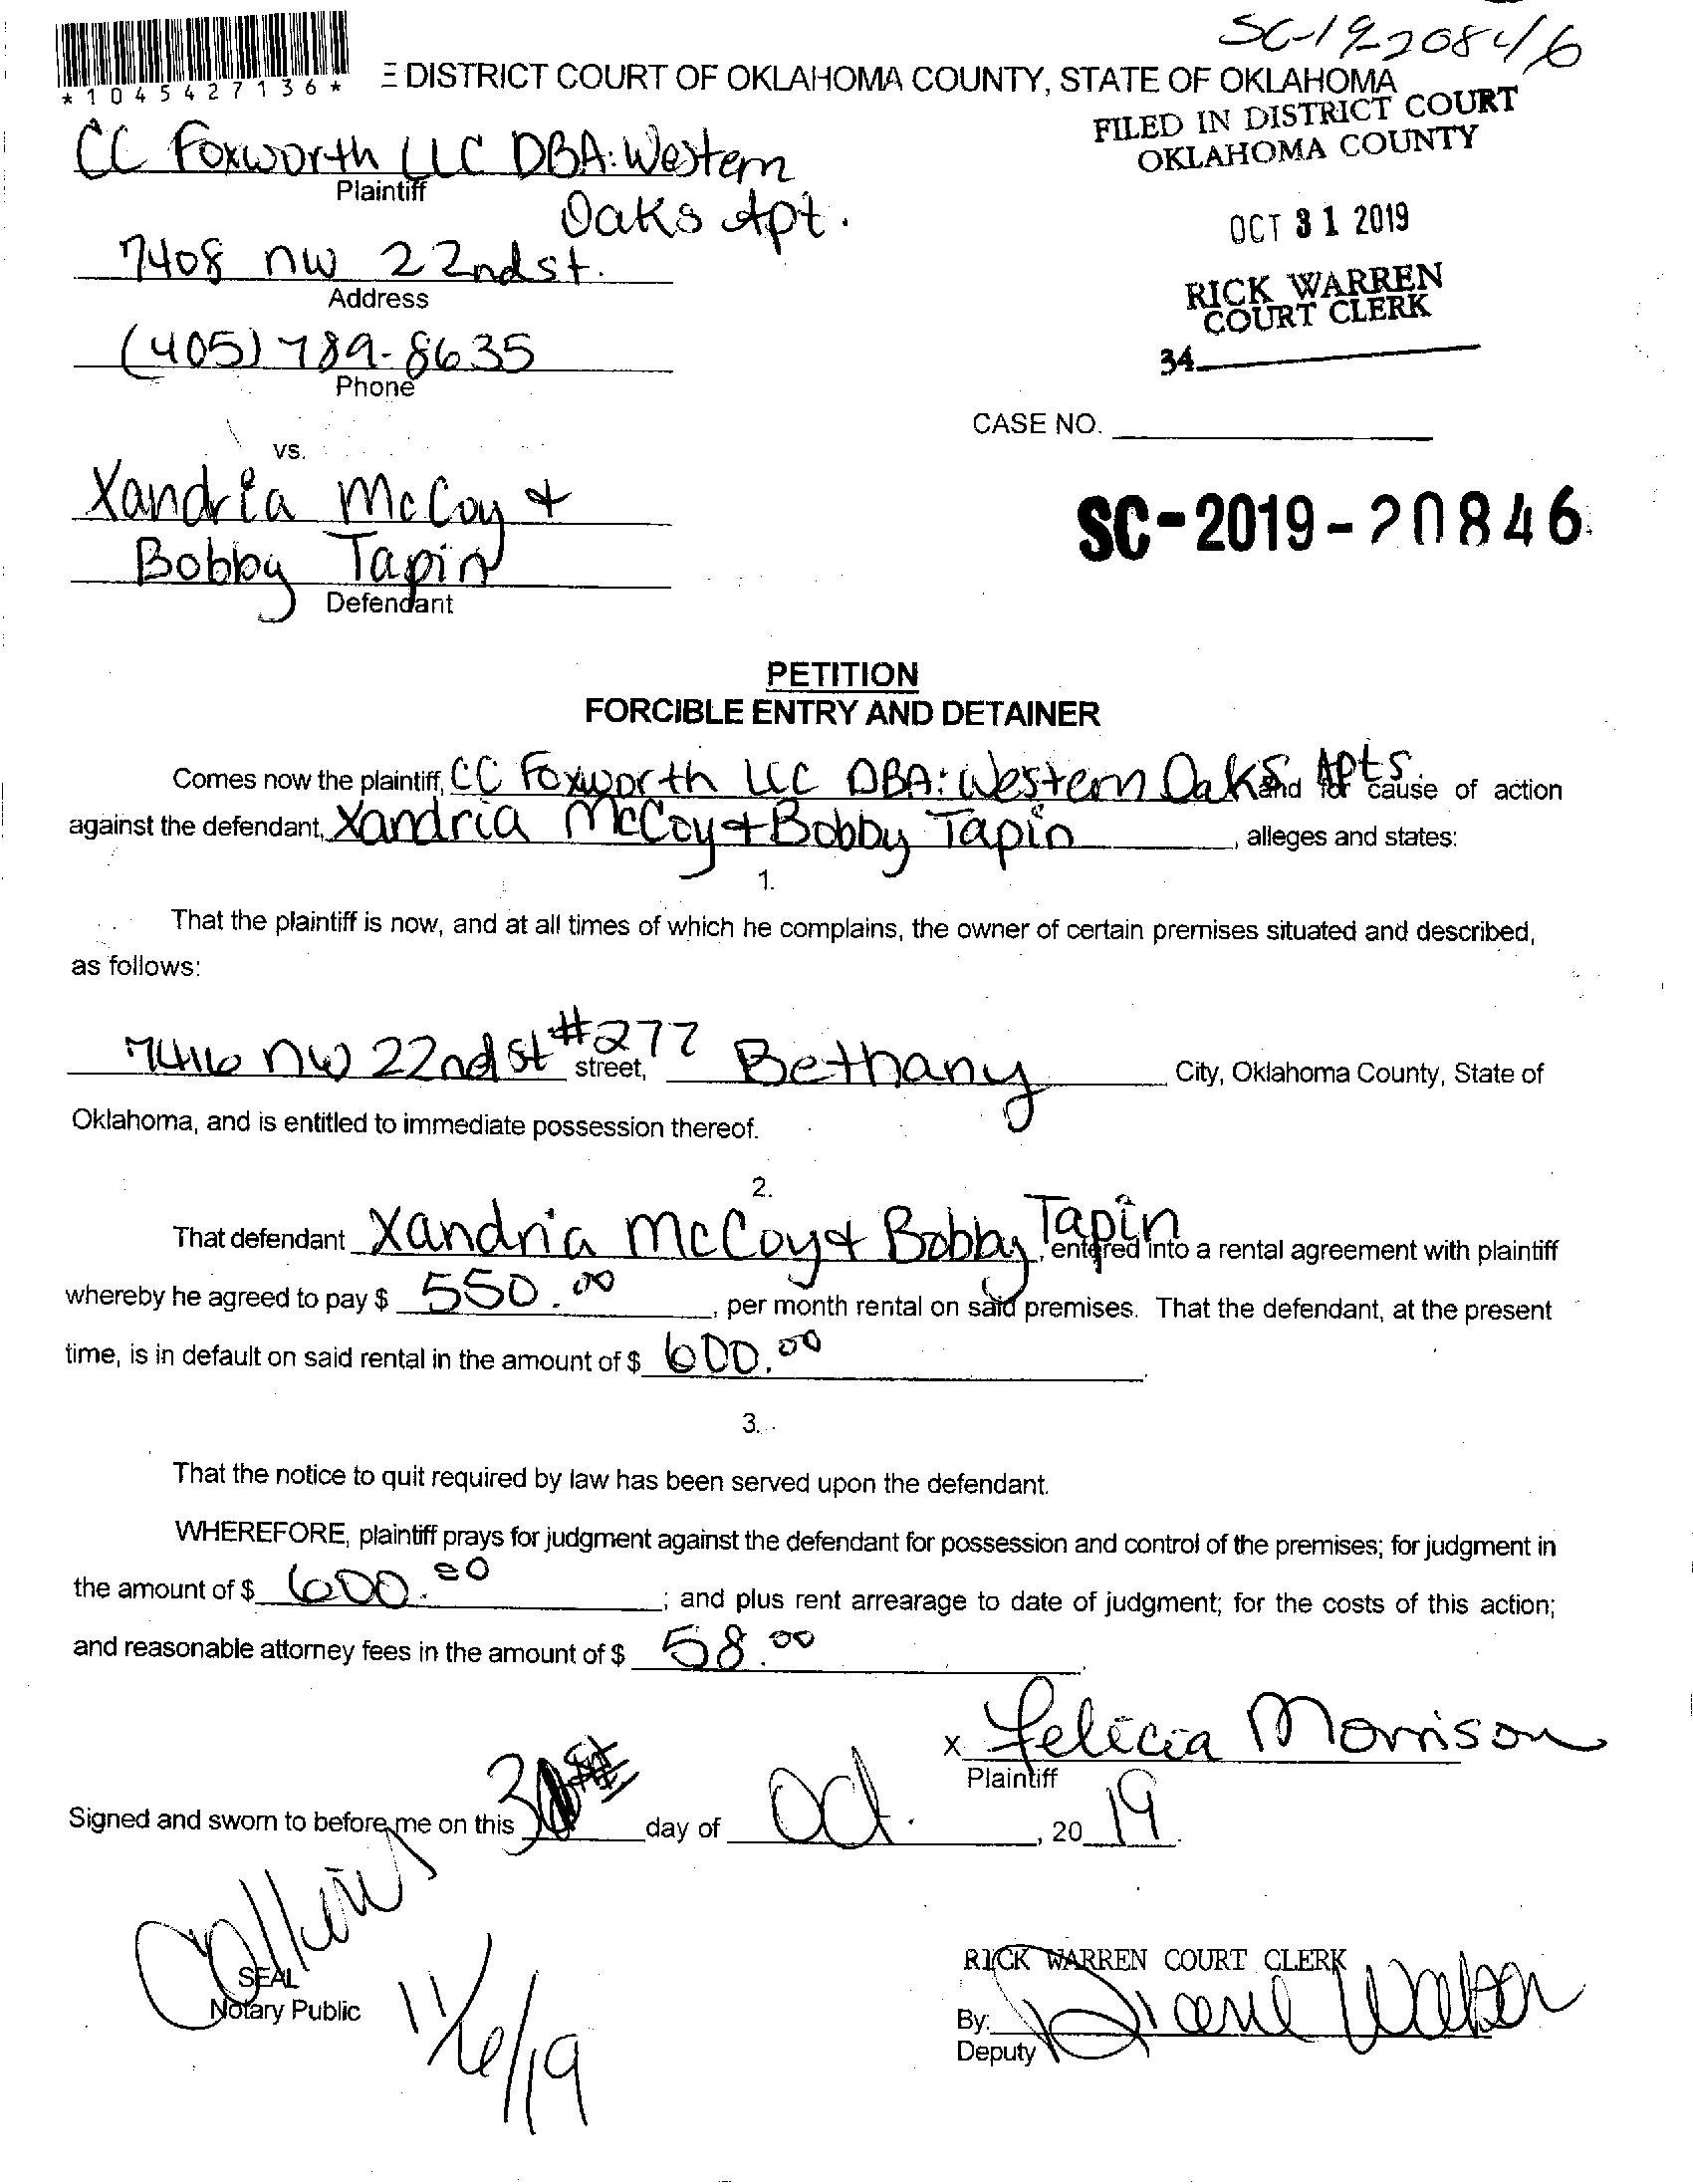 SC-19-20846
*1045427136*
DISTRICT COURT OF OKLAHOMA COUNTY, STATE OF OKLAHOMA
FILED IN DISTRICT COURT
OKLAHOMA COUNTY
CC Foxworth LLC DBA: Western
Plaintiff
Oaks Apt.
OCT 31 2019
7408 NW 22nd st.
Address
RICK WARREN
COURT CLERK
(405) 789-8635
Phone
34
CASE NO.
vs.
Xandria McCoy &
SC-2019-20846
Bobby Tapin
Defendant
PETITION
FORCIBLE ENTRY AND DETAINER
Comes now the plaintiff, CC Foxworth LLC DBA: Western Oaks Apts. and for cause of action
against the defendant, Xandria McCoy & Bobby Tapin, alleges and states:
1.
That the plaintiff is now, and at all times of which he complains, the owner of certain premises situated and described,
as follows:
7416 NW 22nd st #277 street, Bethany City, Oklahoma County, State of
Oklahoma, and is entitled to immediate possession thereof.
2.
That defendant Xandria McCoy & Bobby Tapin, entered into a rental agreement with plaintiff
whereby he agreed to pay $ 550.00, per month rental on said premises. That the defendant, at the present
time, is in default on said rental in the amount of $ 600.00.
3.
That the notice to quit required by law has been served upon the defendant.
WHEREFORE, plaintiff prays for judgment against the defendant for possession and control of the premises; for judgment in
the amount of $ 600.00; and plus rent arrearage to date of judgment; for the costs of this action;
and reasonable attorney fees in the amount of $ 58.00.
x Felicia Morrison
Plaintiff
Signed and sworn to before me on this day of Oct., 2019.
SEAL
Notary Public
11/6/19
RICK WARREN COURT CLERK
By:
Deputy